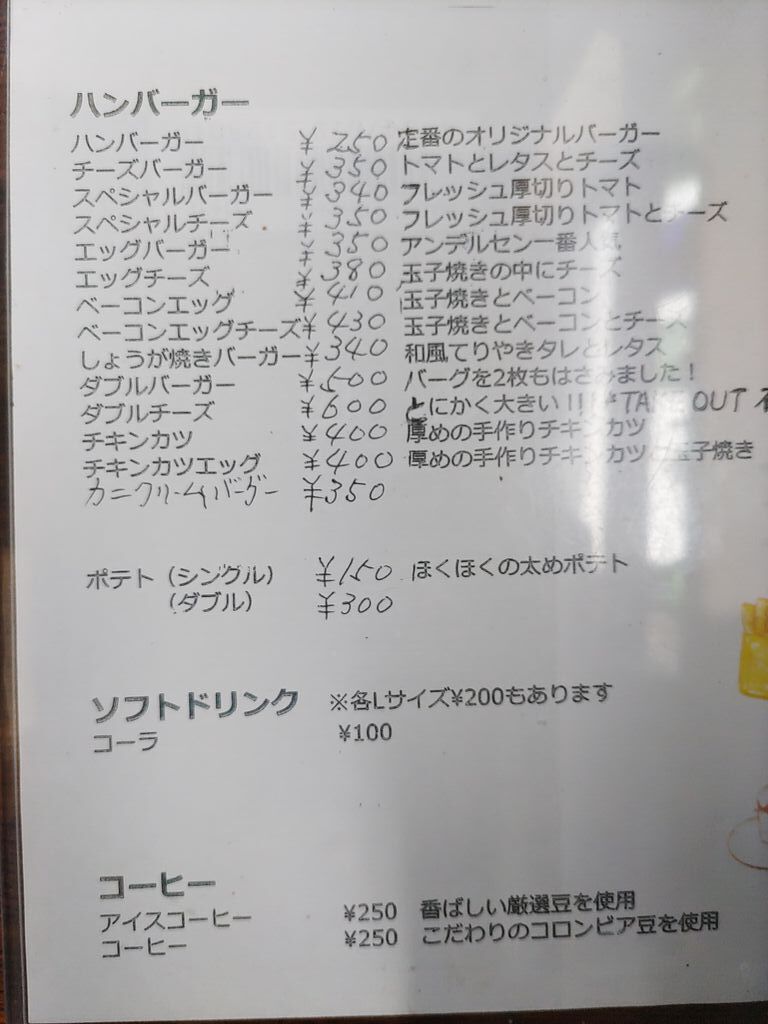 ハンバーガー
ハンバーガー ¥250 定番のオリジナルバーガー
チーズバーガー ¥350 トマトとレタスとチーズ
スペシャルバーガー ¥340 フレッシュ厚切りトマト
スペシャルチーズ ¥350 フレッシュ厚切りトマトとチーズ
エッグバーガー ¥350 アンデルセン一番人気
エッグチーズ ¥380 玉子焼きの中にチーズ
ベーコンエッグ ¥410 玉子焼きとベーコン
ベーコンエッグチーズ ¥430 玉子焼きとベーコンとチーズ
しょうが焼きバーガー ¥340 和風てりやきタレとレタス
ダブルバーガー ¥500 バーグを2枚もはさみました！
ダブルチーズ ¥600 とにかく大きい!!! *TAKE OUT
チキンカツ ¥400 厚めの手作りチキンカツ
チキンカツエッグ ¥400 厚めの手作りチキンカツと玉子焼き
カニクリームバーガー ¥350
ポテト（シングル） ¥150 ほくほくの太めポテト
（ダブル） ¥300
ソフトドリンク ※各Lサイズ¥200もあります
コーラ ¥100
コーヒー
アイスコーヒー ¥250 香ばしい厳選豆を使用
コーヒー ¥250 こだわりのコロンビア豆を使用